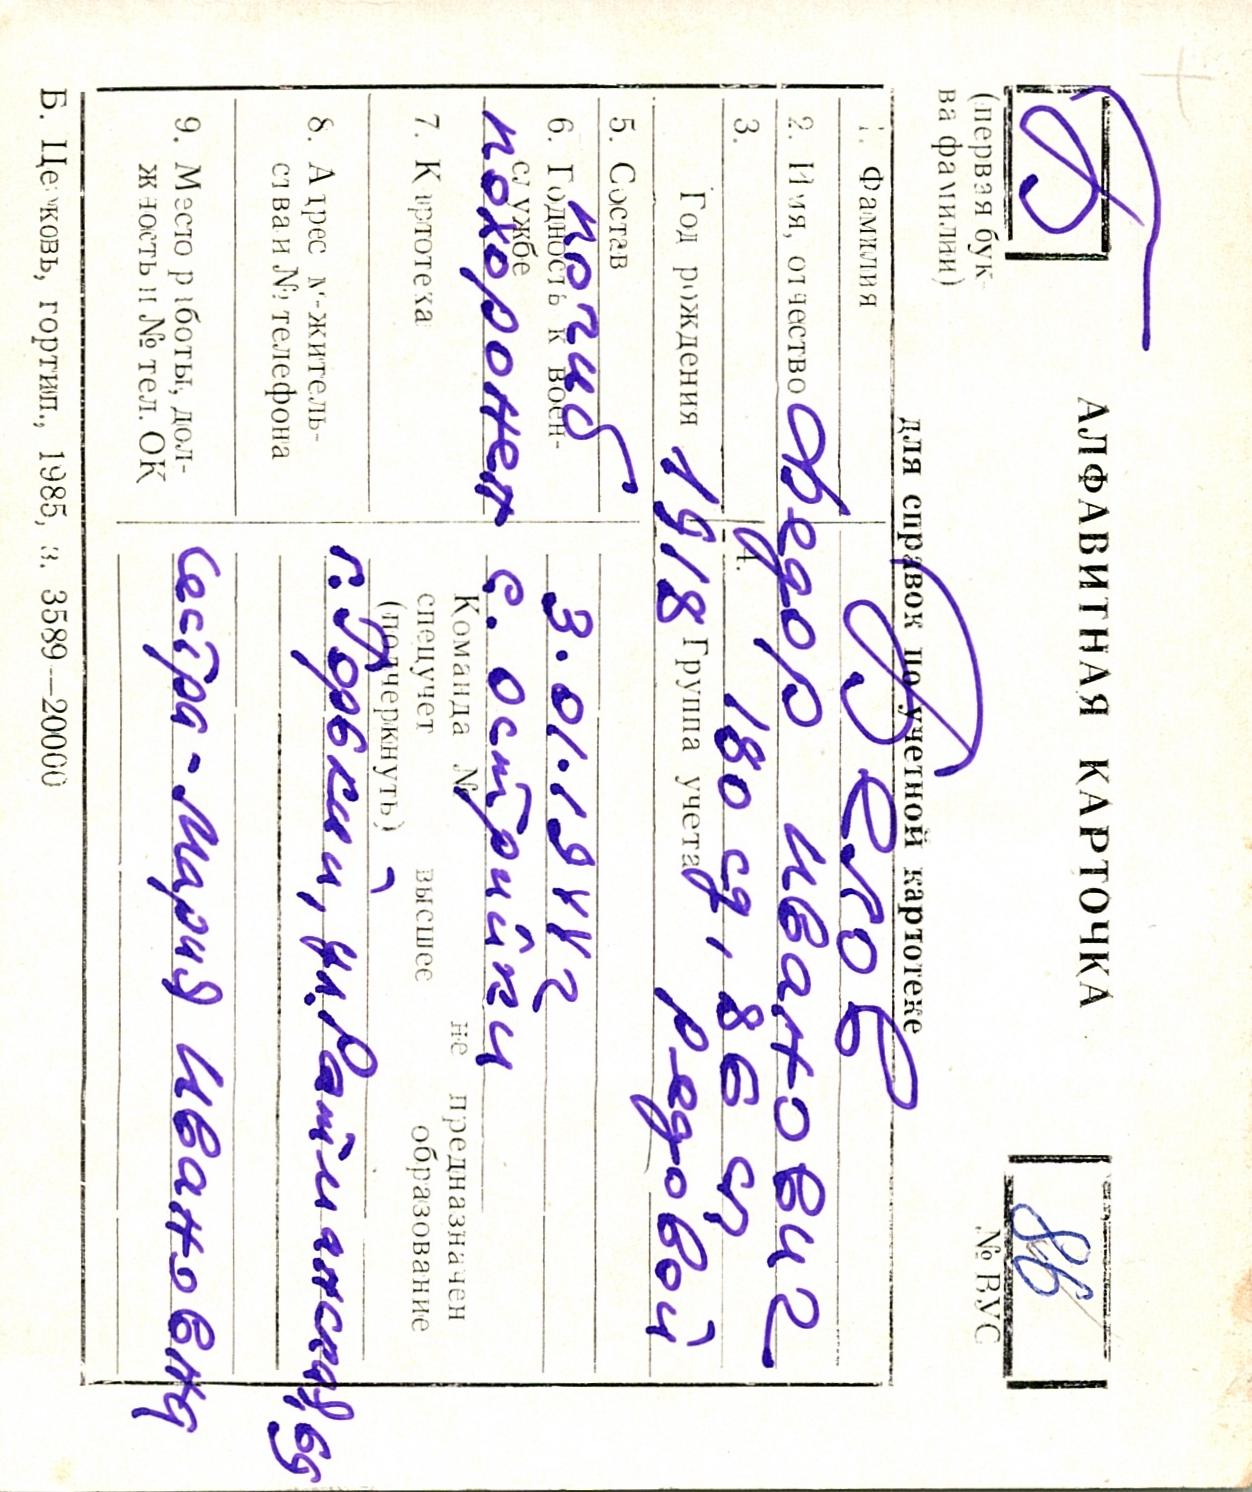 АЛФАВИТНАЯ КАРТОЧКА
(первая бук-
ва фамилии)
86
№ ВУС
для справок по учетной картотеке
1. Фамилия
2. Имя, отчество Федор Иванович
3. 4. 180 сд, 86 сп
Год рождения 1918 Группа учета рядовой
5. Состав
6. Годность к воен-
ной службе
погиб 3.01.1944 г
похоронен с. Острийки
7. Картотека
Команда № не предназначен
спецучет высшее образование
(подчеркнуть)
8. Адрес м-житель-
ства и № телефона
г. Горький, ул.
9. Место работы, дол-
жность и № тел. ОК
Сестра - Мария Ивановна
Б. Церковь, гортип., 1985, з. 3589—20000